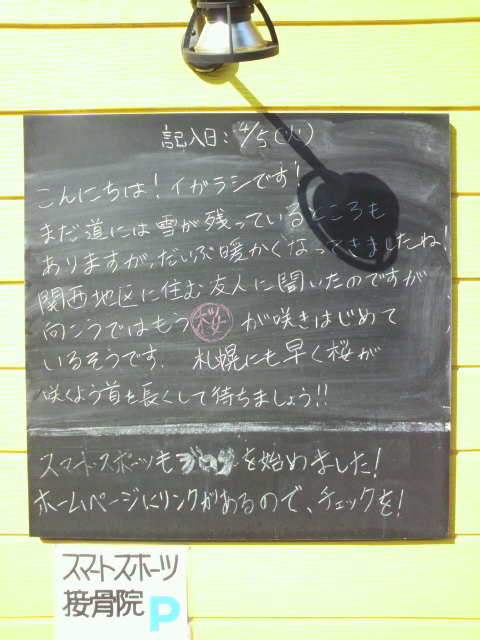 記入日: 4/5(火)
こんにちは!イガラシです!
まだ道には雪が残っているところも
ありますが、だいぶ暖かくなってきましたね、
関西地区に住む友人に聞いたのですが
向こうではもう桜が咲きはじめて
いるそうです. 札幌にも早く桜が
咲くよう首を長くして待ちましょう!!
スマートスポーツもブログを始めました!
ホームページにリンクがあるので、チェックを!
スマートスポーツ
接骨院 P